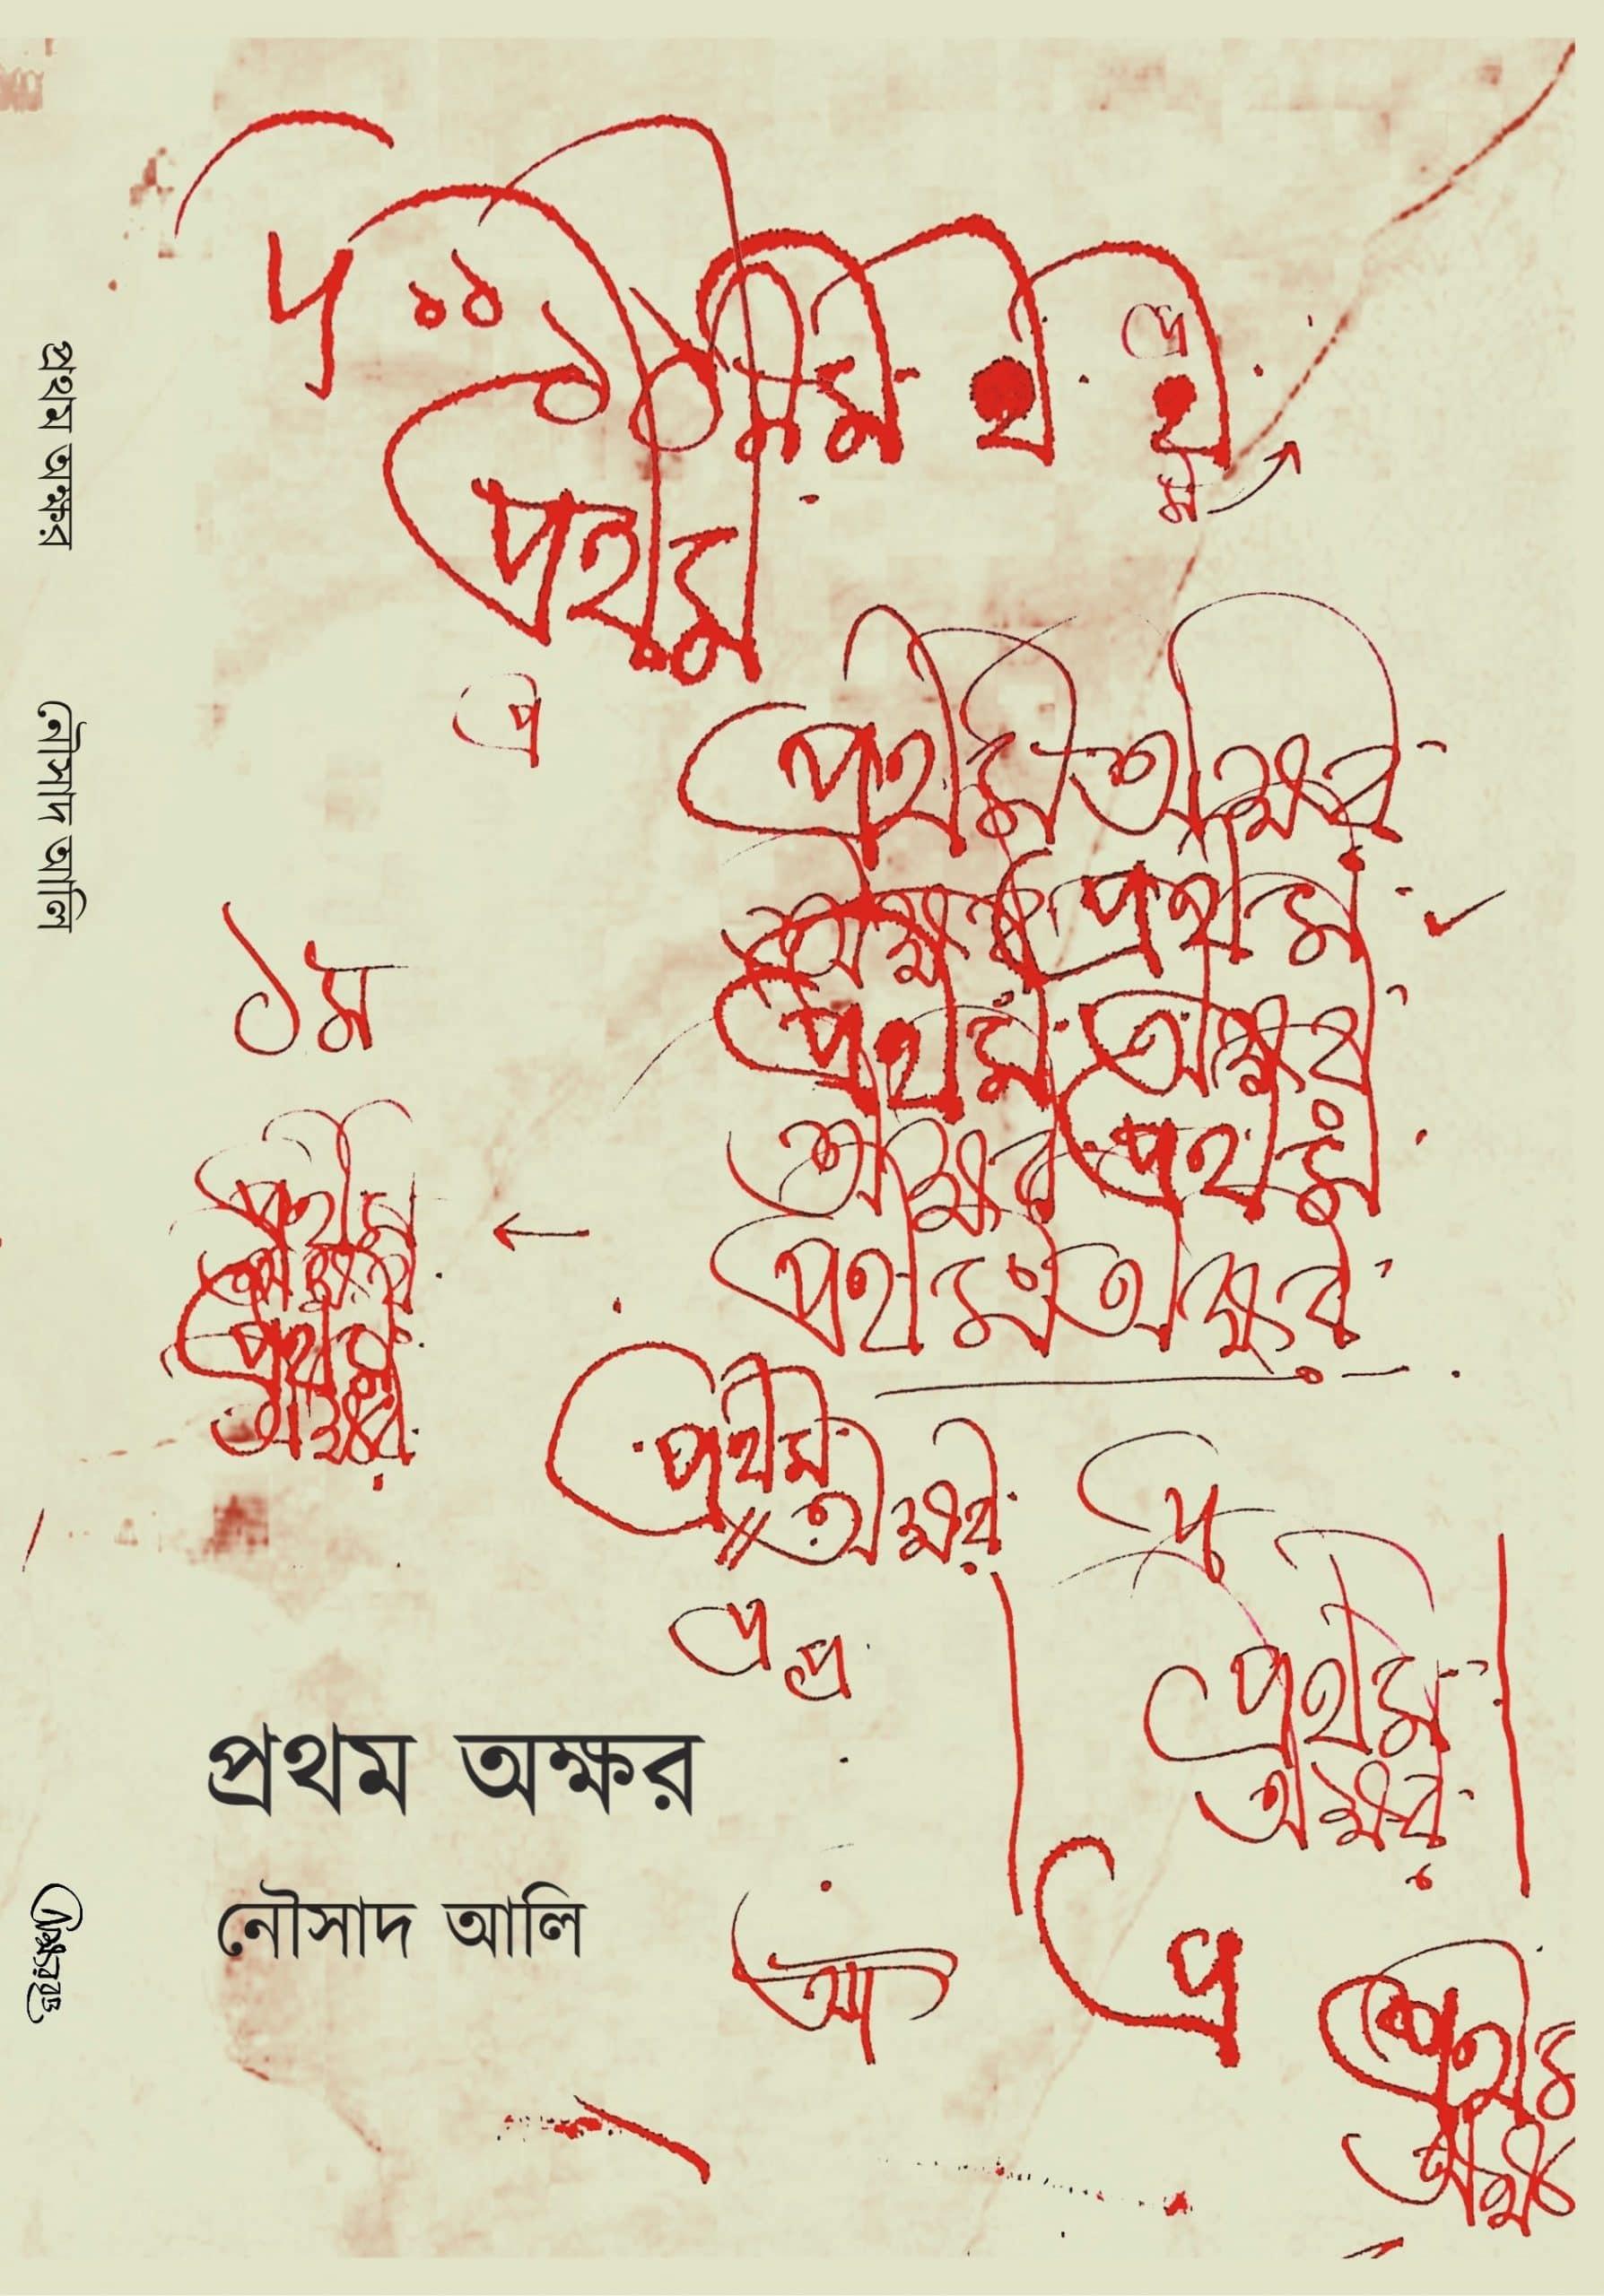 প
১১
১১মম থ থ
প্র
ম
প্রথম
প্র
প্রথম অক্ষর
অক্ষর প্রথম
প্রথম অক্ষর
অক্ষর প্রথম
প্রথম অক্ষর
১ম
প্রথম
অক্ষর
প্রথম
অক্ষর
প্রথম
অক্ষর
প্র
প্র
প্র
প্রথম
অক্ষর
প্রথম অক্ষর
নৌসাদ আলি
আ
প্র
প্রথম
অক্ষ
প্রথম অক্ষর
নৌসাদ আলি